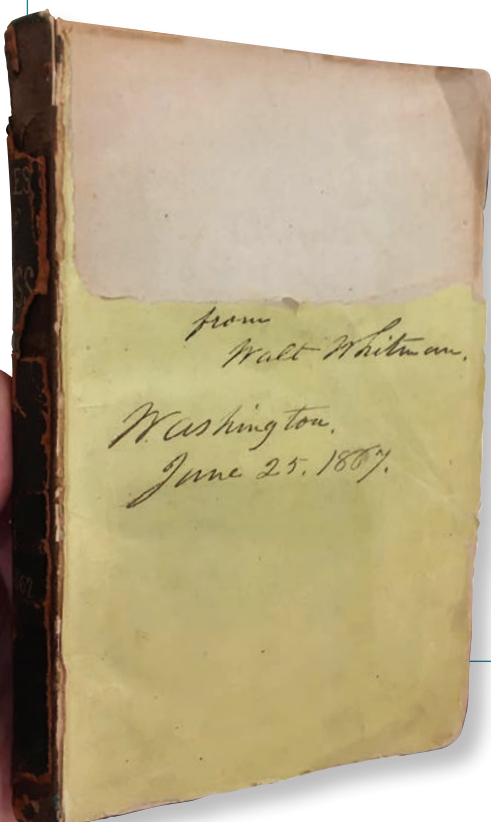 from
Walt Whitman.
Washington.
June 25. 1867.
ES
SS